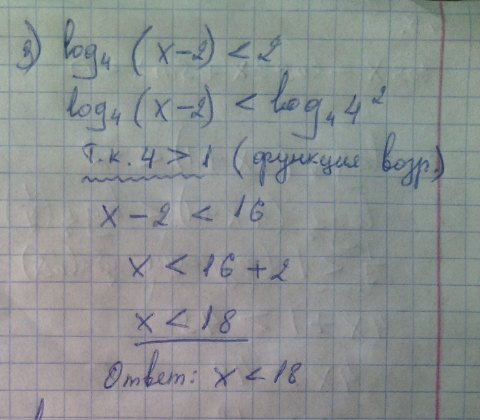 3) log₄ (x-2) < 2
log₄ (x-2) < log₄ 4²
т.к. 4 > 1 (функция возр.)
x - 2 < 16
x < 16 + 2
x < 18
Ответ: x < 18